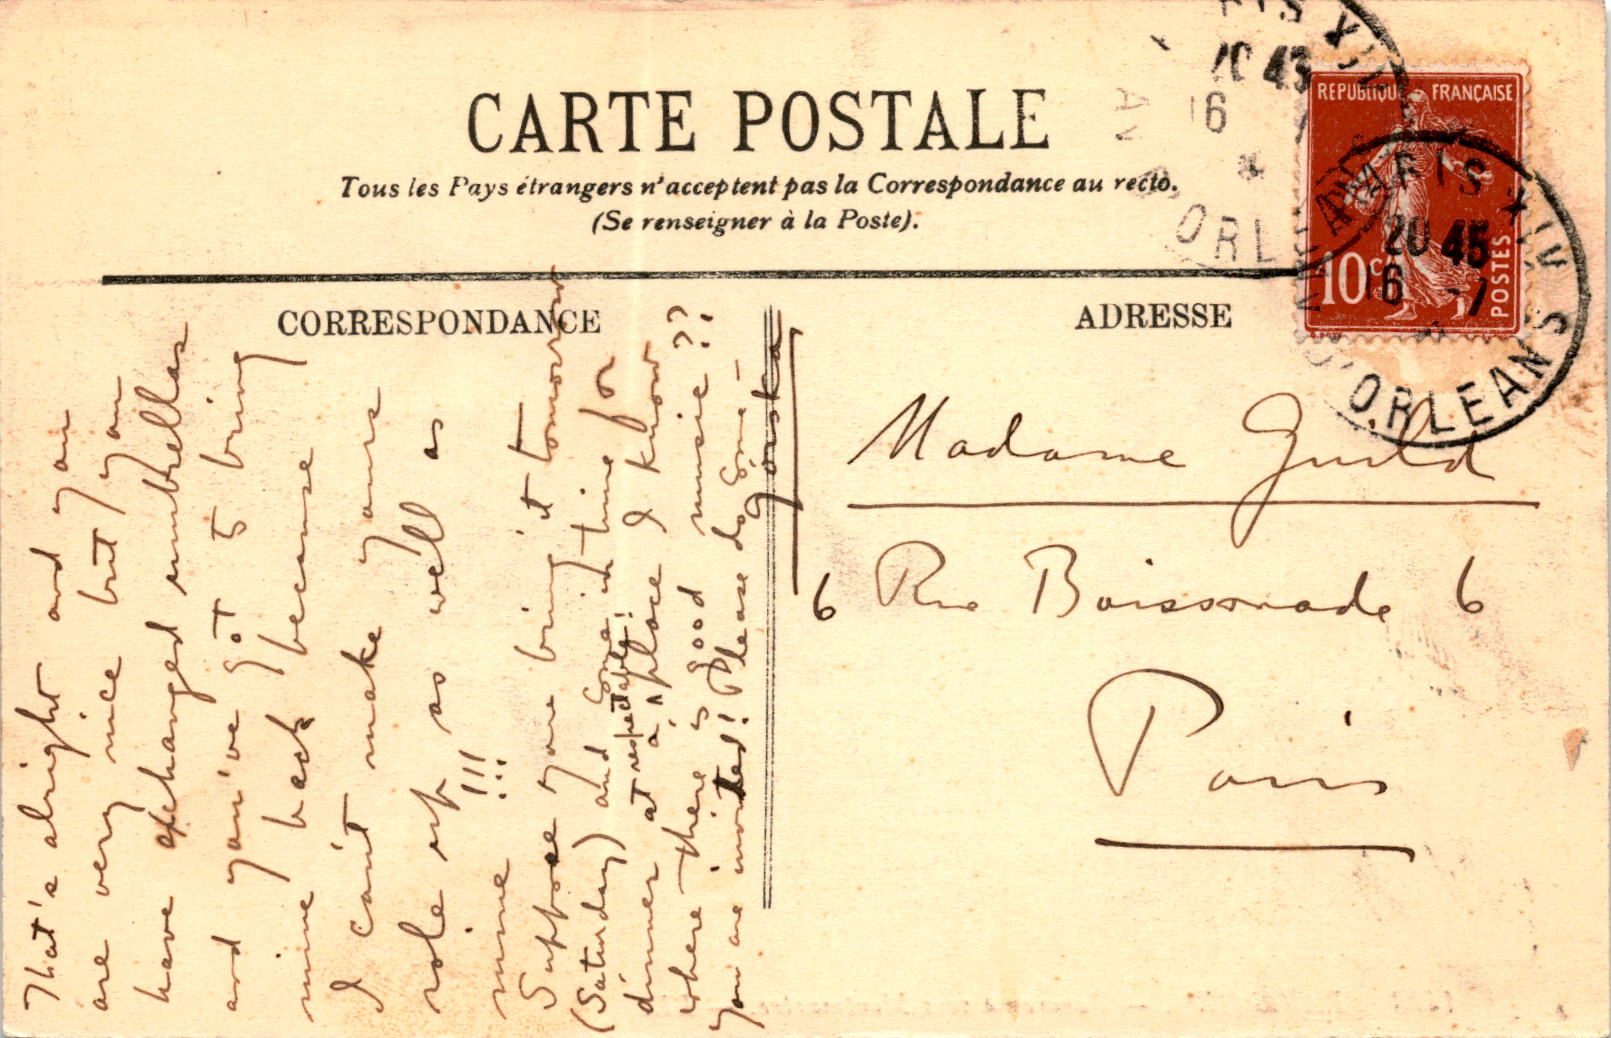 CARTE POSTALE
Tous les Pays étrangers n'acceptent pas la Correspondance au recto.
(Se renseigner à la Poste).
CORRESPONDANCE
ADRESSE
REPUBLIQUE FRANÇAISE
10c
POSTES
20 45
16 -7
D'ORLEANS
That's alright and you
are very nice but you
have exchanged umbrellas
and you've got to bring
mine back because
I can't make yours
role up as well as
mine !!!
Suppose you bring it tomorrow
(Saturday) and come in time for
dinner at a respectable! place I know
where there is good music??
you are invited! Please do come -
Madame Guild
6 Rue Boissonade 6
Paris